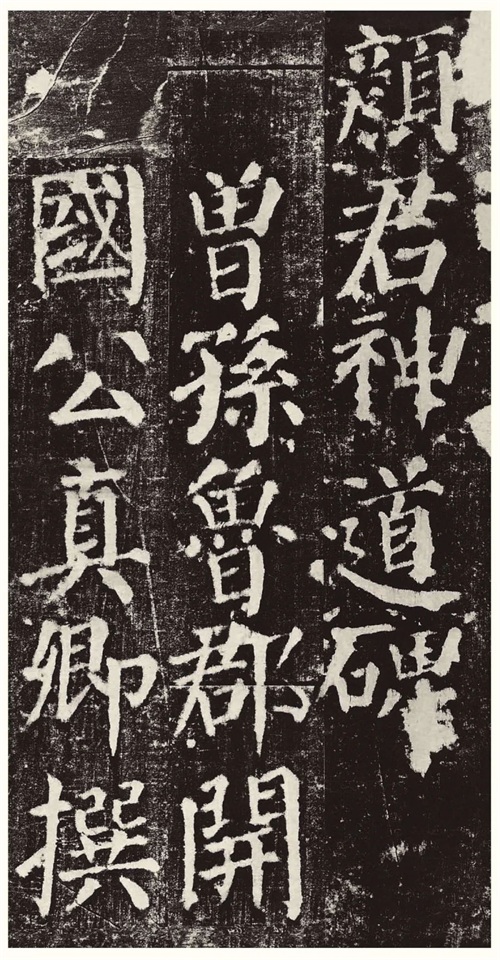 顏君神道碑
曽孫魯郡開
國公真卿撰